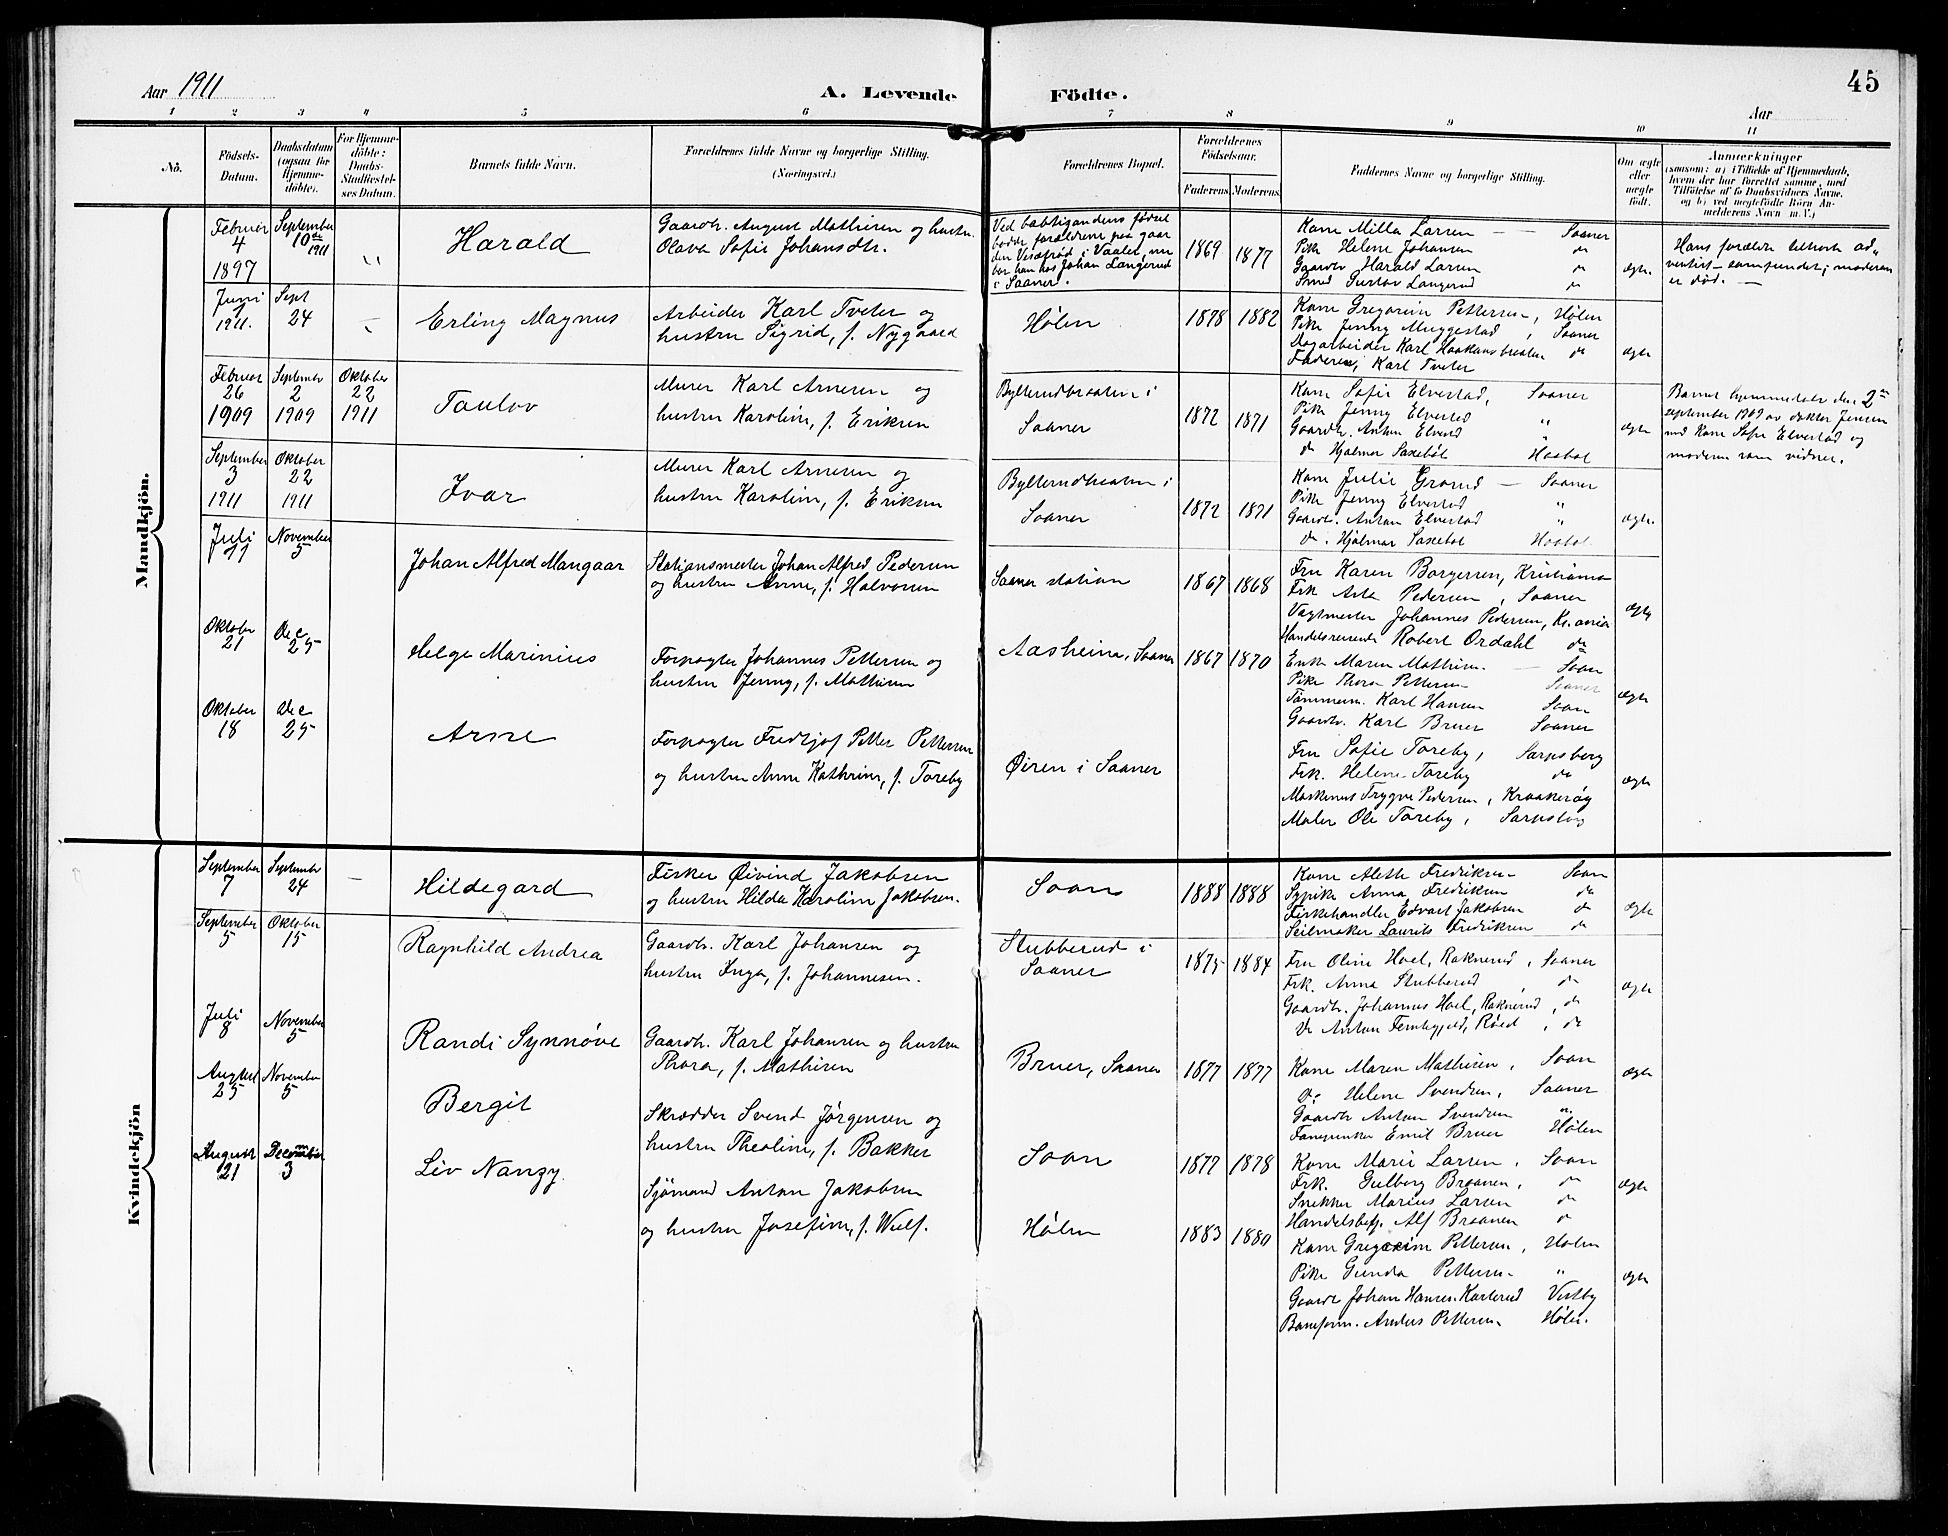 Aar 1911
A. Levende Födte.
45
Aar
1 2 3 4 5 6 7 8 9 10 11
No.
Födsels-
Datum.
Daabsdatum
(ogsaa for
Hjemme-
döbte).
For Hjemme-
döbte:
Daabs-
Stadfæstel-
ses Datum.
Barnets fulde Navn.
Forældrenes fulde Navne og borgerlige Stilling.
(Næringsvei.)
Forældrenes Bopæl.
Forældrenes
Födselsaar.
Faderens
Moderens
Faddernes Navne og borgerlige Stilling.
Om ægte
eller
uægte
födt.
Anmærkninger
(saasom: a) i Tilfælde af Hjemmedaab,
hvem der har forrettet samme, med
Tilföielse af to Daabsvidners Navne,
og b) ved uægtefödte Börn An-
melderens Navn m. V.)
Mandkjön.
Februar
4
1897
September
10de
1911
"
Harald
Gaardbr. August Mathisen og hustru
Olava Sofie Johansdtr.
Ved babtizandens födsel
bodde forældrene paa gaar
den Vesterød i Vaaler, nu
bor han hos Johan Langerud
i Saaner.
1869
1877
Kone Milla Larsen — Saaner
Pike Helene Johansen do
Gaardbr Harald Larsen do
Smed Gustav Langerud do
ægte.
Hans forældre tilhørte ad„
ventist-samfundet; moderen
er død. —
Juni
7
1911.
Sept
24
Erling Magnus
Arbeider Karl Tveter og
hustru Sigrid, f. Nygaard
Hølen
1878
1882
Kone Gregorine Pettersen, Hølen
Pike Jenny Muggestad, Saaner
Dagarbeider Karl Haakonsbraaten do
Faderen, Karl Tveter
ægte
Februar
26
1909
September
2
1909
Oktober
22
1911
Toulov
Murer Karl Arnesen og
hustru Karoline, f. Eriksen
Bylterudbraaten i
Saaner
1872
1871
Kone Sofie Elvestad, Saaner
Pike Jenny Elvestad "
Gaardbr. Anton Elvestad "
do Hjalmar Saxebøl Haabøl
ægte
Barnet hjemmedøbt den 2den
september 1909 av doktor Jensen
med kone Sofie Elvestad og
moderen som vidner.
September
3
1911
Oktober
22
1911
Ivar
Murer Karl Arnesen og
hustru Karoline, f. Eriksen
Bylterudbraaten i
Saaner
1872
1871
Kone Julie Grønd — Saaner
Pike Jenny Elvestad "
Gaardb. Anton Elvestad "
do. Hjalmar Saxebøl Haabøl
ægte.
Juli
11
November
5
Johan Alfred Mangaar
Stationsmester Johan Alfred Pedersen
og hustru Anne, f. Halvorsen
Saaner station
1867
1868
Fru Karen Borgersen, Kristiania
Frk Asta Pedersen, Saaner
Vagtmester Johannes Pedersen, Kr.ania
Handelsreisende Robert Ordahl do
ægte
Oktober
21
Dec
25
Helge Marinius
Forpagter Johannes Pettersen og
hustru Jenny, f. Mathisen
Aasheim, Saaner
1867
1870
Enke Maren Mathisen. — Saan
Pike Thora Pettersen Saaner
Tømmerm. Karl Hansen Saan
Gaardb. Karl Bruer Saaner
ægte
Oktober
18
Dec
25
Arne
Forpagter Fredtjof Petter Pettersen
og hustru Anne Kathrine, f. Toreby
Øiren i Saaner
Fru Sofie Toreby, Sarpsborg
Frk. Helene Toreby do
Maskinist Trygve Pedersen, Kraakerøy
Maler Ole Toreby, Sarpsborg
ægte
Kvindekjön
September
7
September
24
—
Hildegard
Fisker Øivind Jakobsen
og hustru Hilda Karoline Jakobsen.
Saan
1888
1888
Kone Alethe Fredriksen Saan
Sypike Anna Fredriksen do
Fiskehandler Edvart Jakobsen do
Seilmaker Laurits Fredriksen do
ægte
September
5
Oktober
15
Ragnhild Andrea
Gaardb. Karl Johansen og
hustru Inga, f. Johannesen.
Stubberud i
Saaner
1875
1884
Fru Oline Hoel, Raknerud, Saaner
Frk. Anna Stubberud, do
Gaardbr. Johannes Hoel, Raknerud, do
Do Anton Fembyfeld, Røed, do
ægte
Juli
8
November
5
Randi Synnøve
Gaardb. Karl Johansen og hustru
Thora, f. Mathisen
Bruer, Saaner
1877
1877
Kone Maren Mathisen, Saan
Do Helene Svendsen, Saaner
Gaardb Anton Svendsen "
Emil Bruer Hølen
ægte
August
25
November
5
Bergit
Skrædder Svend Jørgensen og
hustru Theoline, f. Bakker
Saan
1877
1878
Kone Marie Larsen, Saan
Frk. Gulborg Braanen, do
Snekker Marius Larsen do
Handelsbetj. Alf Braanen do
ægte
August
21
December
3
Liv Nanzy.
Sjømand Anton Jakobsen
og hustru Josefine, f. Wulf.
Hølen
1883
1880
Kone Gregorine Pettersen, Hølen
Pike Gunda Pettersen "
Gaardb Johan Hansen Karlerud Vestby
Baneform. Anders Pettersen Hølen.
ægte